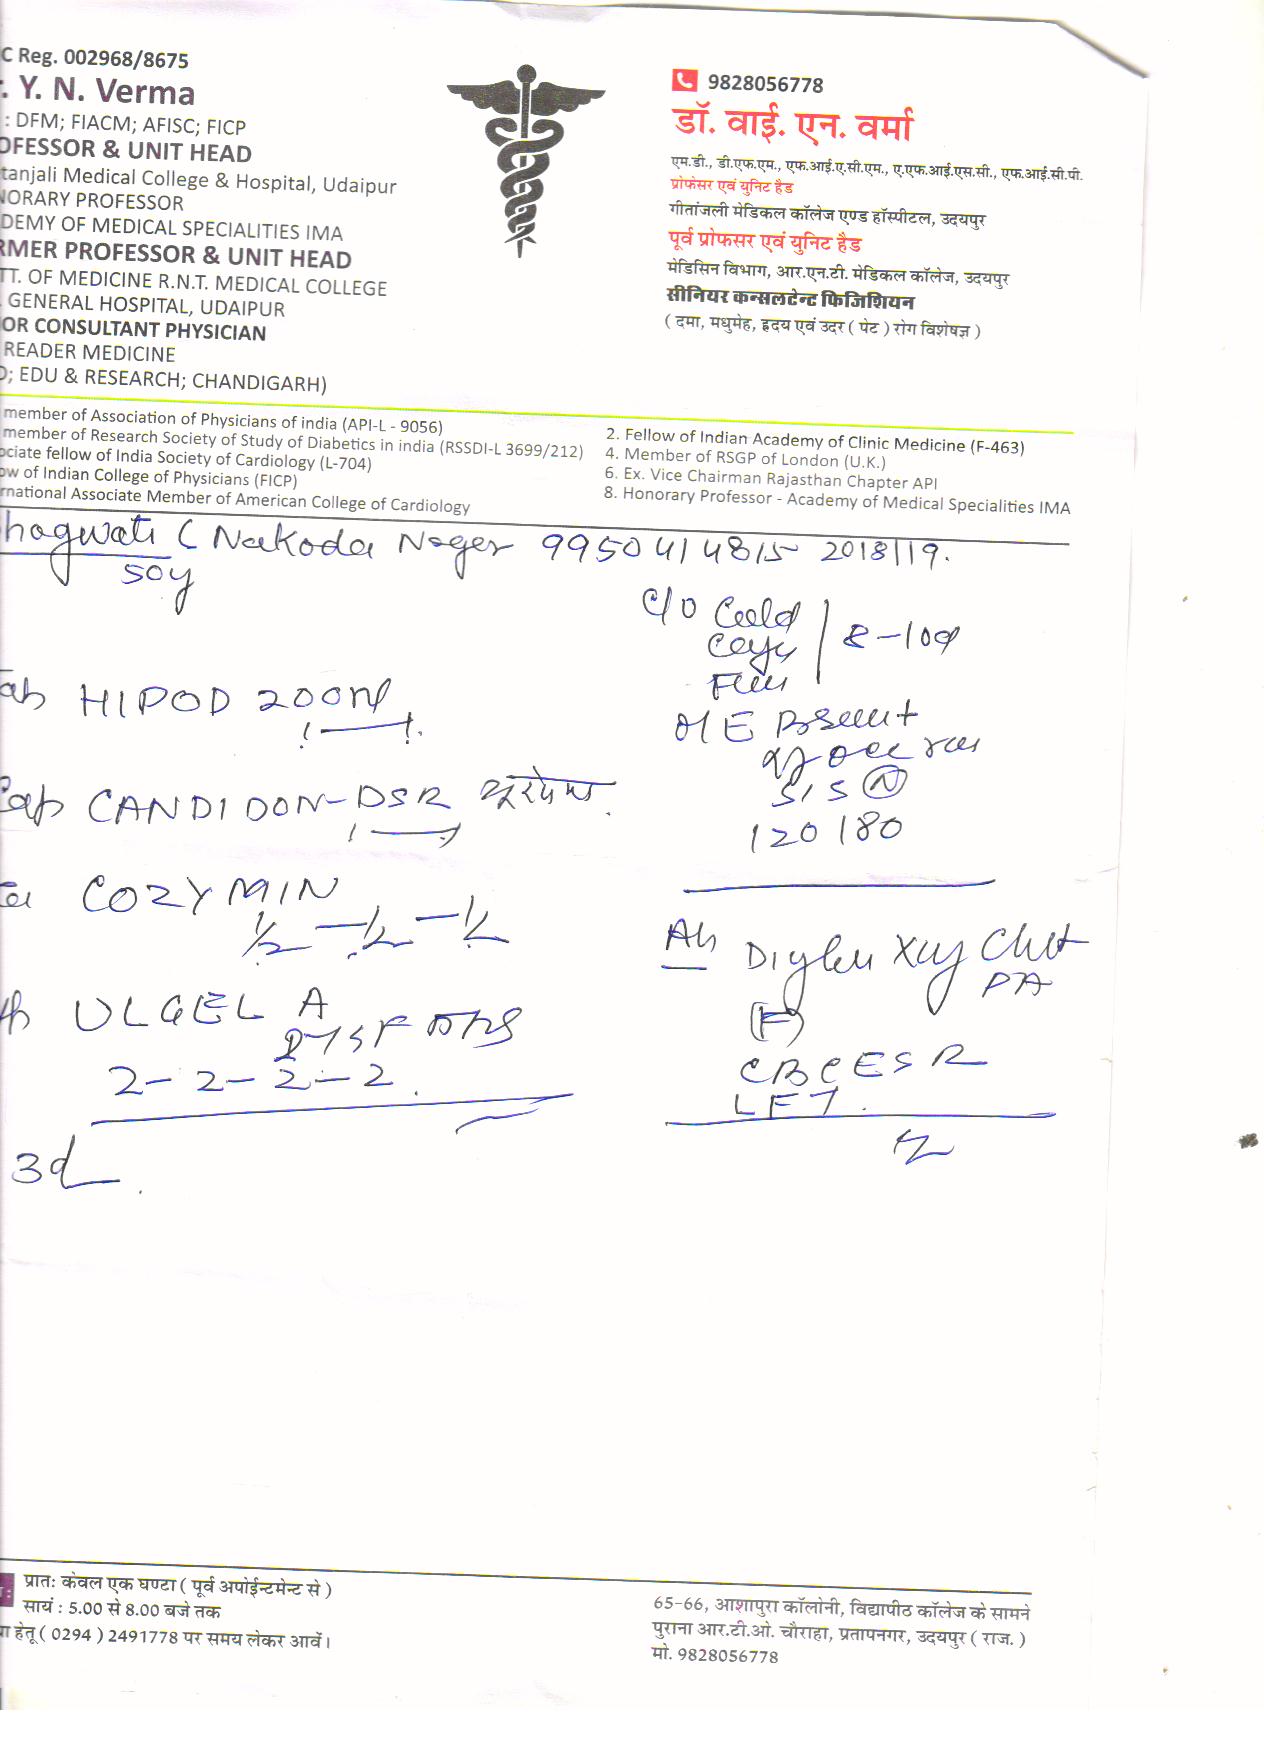 C Reg. 002968/8675
r. Y. N. Verma
: DFM; FIACM; AFISC; FICP
OFESSOR & UNIT HEAD
tanjali Medical College & Hospital, Udaipur
NORARY PROFESSOR
DEMY OF MEDICAL SPECIALITIES IMA
RMER PROFESSOR & UNIT HEAD
TT. OF MEDICINE R.N.T. MEDICAL COLLEGE
GENERAL HOSPITAL, UDAIPUR
OR CONSULTANT PHYSICIAN
READER MEDICINE
D; EDU & RESEARCH; CHANDIGARH)
9828056778
डॉ. वाई. एन. वर्मा
एम.डी., डी.एफ.एम., एफ.आई.ए.सी.एम., ए.एफ.आई.एस.सी., एफ.आई.सी.पी.
प्रोफेसर एवं युनिट हैड
गीतांजली मेडिकल कॉलेज एण्ड हॉस्पीटल, उदयपुर
पूर्व प्रोफसर एवं युनिट हैड
मेडिसिन विभाग, आर.एन.टी. मेडिकल कॉलेज, उदयपुर
सीनियर कन्सलटेन्ट फिजिशियन
( दमा, मधुमेह, ह्रदय एवं उदर ( पेट ) रोग विशेषज्ञ )
member of Association of Physicians of india (API-L - 9056)
2. Fellow of Indian Academy of Clinic Medicine (F-463)
member of Research Society of Study of Diabetics in india (RSSDI-L 3699/212)
4. Member of RSGP of London (U.K.)
ociate fellow of India Society of Cardiology (L-704)
6. Ex. Vice Chairman Rajasthan Chapter API
ow of Indian College of Physicians (FICP)
8. Honorary Professor - Academy of Medical Specialities IMA
rnational Associate Member of American College of Cardiology
hagwati ( Nakoda Nager 9950414815 2018/19.
50y
C/O Cold
8-10d
Tab HIPOD 200mg
1 — 1
O/E
Cap CANDIDON-DSR
1
S1S (N)
120/80
COZYMIN
1/2 - 1/2 - 1/2
ULGEL A
2 - 2 - 2 - 2
3d
Xray Chest
PA
(F)
CBC ESR
LFT
प्रातः केवल एक घण्टा ( पूर्व अपोईन्टमेन्ट से )
सायं : 5.00 से 8.00 बजे तक
हेतू ( 0294 ) 2491778 पर समय लेकर आवें।
65-66, आशापुरा कॉलोनी, विद्यापीठ कॉलेज के सामने
पुराना आर.टी.ओ. चौराहा, प्रतापनगर, उदयपुर ( राज. )
मो. 9828056778